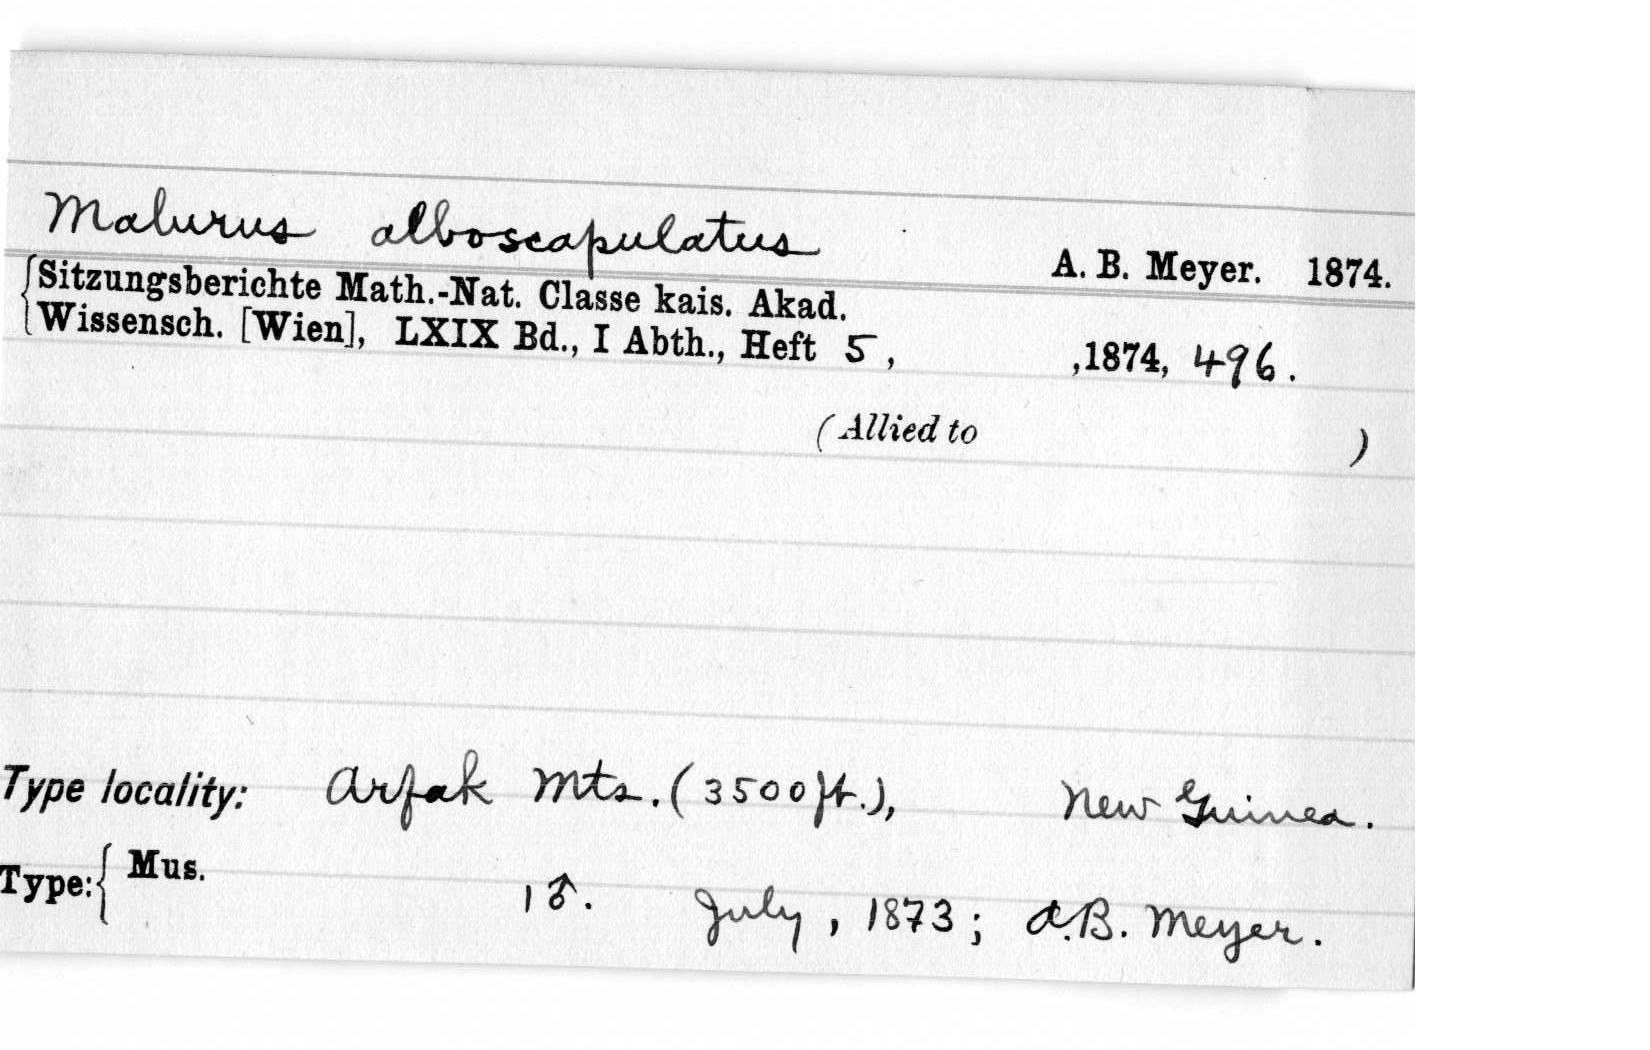 Malurus alboscapulatus A. B. Meyer. 1874.
{Sitzungsberichte Math.-Nat. Classe kais. Akad.
Wissensch. [Wien], LXIX Bd., I Abth., Heft 5, ,1874, 496.
(Allied to )
Type locality: Arfak Mts. (3500 ft.), New Guinea.
Type:{ Mus. 1♂. July, 1873; A.B. Meyer.